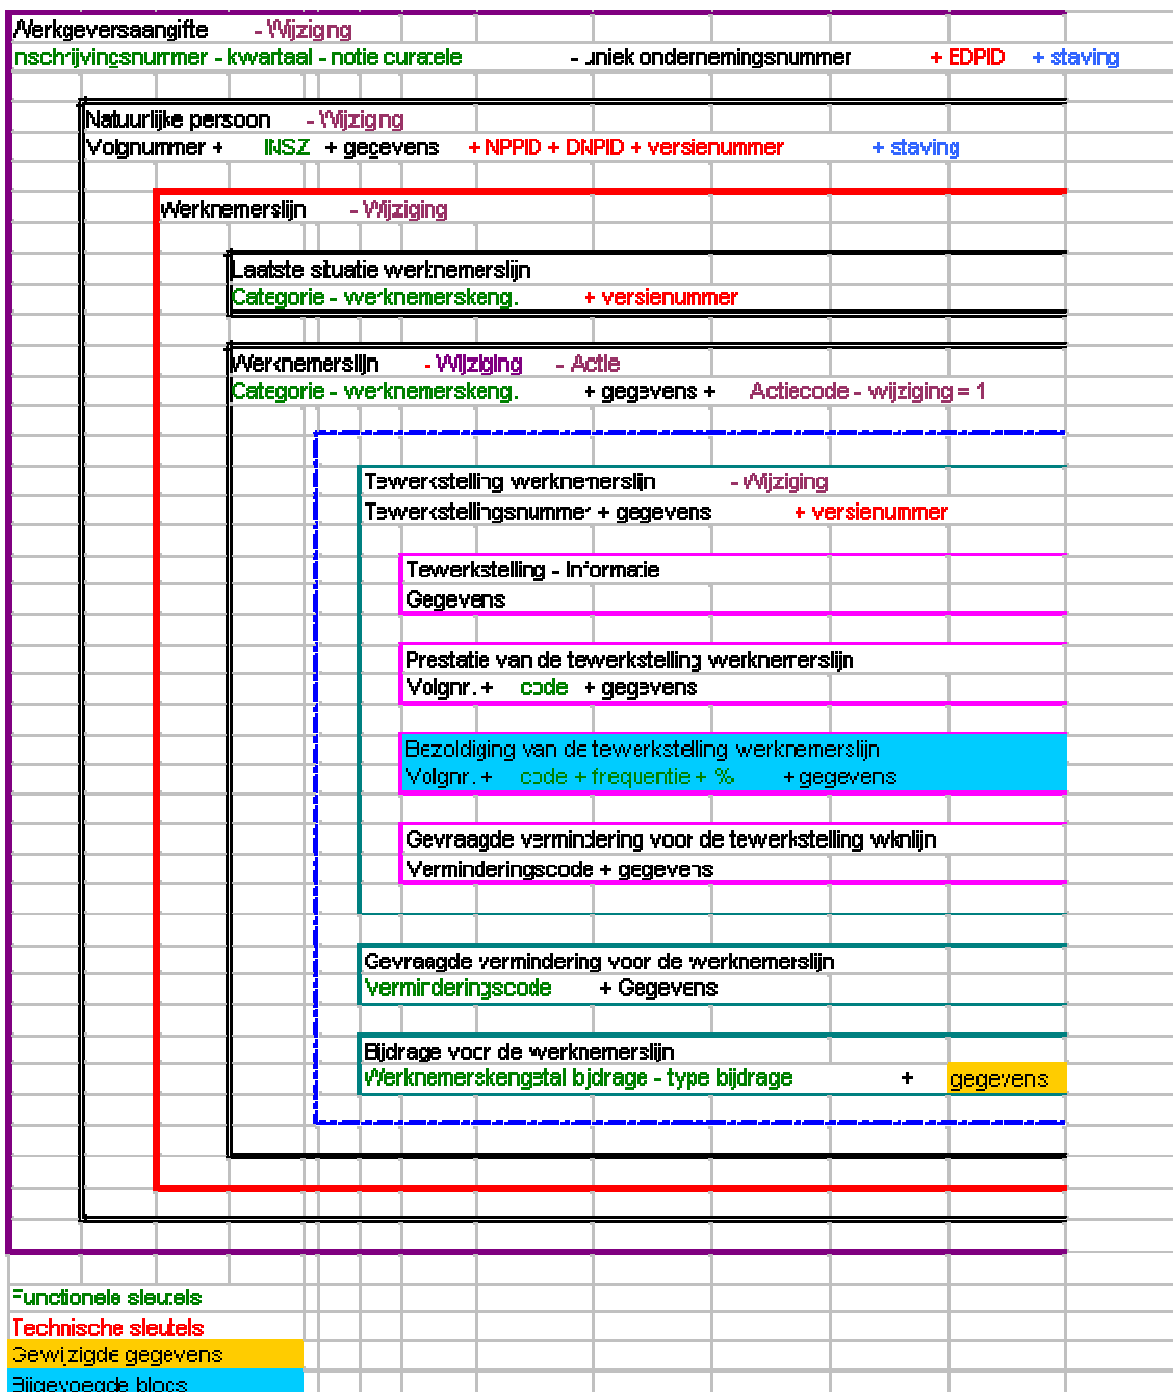 Werkgeversaangifte - Wijziging
Inschrijvingsnummer - kwartaal - notie curatele - uniek ondernemingsnummer + EDPID + staving
Natuurlijke persoon - Wijziging
Volgnummer + INSZ + gegevens + NPPID + DNPID + versienummer + staving
Werknemerslijn - Wijziging
Laatste situatie werknemerslijn
Categorie - werknemerskeng. + versienummer
Werknemerslijn - Wijziging - Actie
Categorie - werknemerskeng. + gegevens + Actiecode - wijziging = 1
Tewerkstelling werknemerslijn - Wijziging
Tewerkstellingsnummer + gegevens + versienummer
Tewerkstelling - Informatie
Gegevens
Prestatie van de tewerkstelling werknemerslijn
Volgnr. + code + gegevens
Bezoldiging van de tewerkstelling werknemerslijn
Volgnr. + code + frequentie + % + gegevens
Gevraagde vermindering voor de tewerkstelling wknlijn
Verminderingscode + gegevens
Gevraagde vermindering voor de werknemerslijn
Verminderingscode + Gegevens
Bijdrage voor de werknemerslijn
Werknemerskengetal bijdrage - type bijdrage + gegevens
Functionele sleutels
Technische sleutels
Gewijzigde gegevens
Bijgevoegde blocs